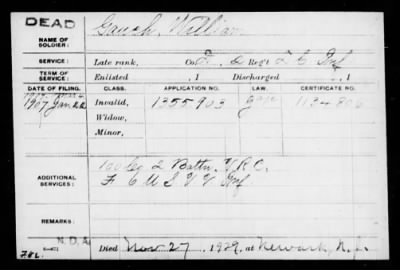 DEAD
NAME OF SOLDIER: Gauch, William
SERVICE: Late rank, Co. Regt Inf
TERM OF SERVICE: Enlisted , 1 Discharged , 1
DATE OF FILING. CLASS. APPLICATION NO. LAW. CERTIFICATE NO.
1907 Jan 22 Invalid, 1355903 1134806
Widow,
Minor,
ADDITIONAL SERVICES: 160 Co 2 Battn V.R.C.
F 6 U S V V Inf
REMARKS:
N.D.A.
Died Nov 27, 1929, at Newark, N.J.